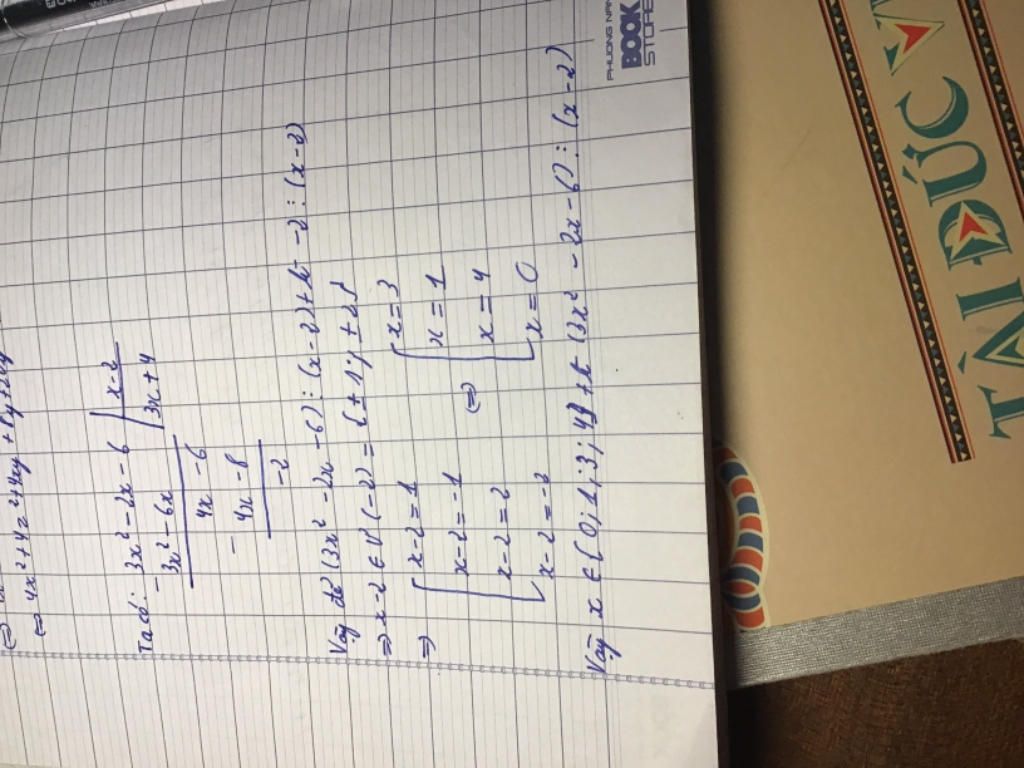 ⇔ 4x²+4y²+4xy
Ta có: - 3x² - 2x - 6 | x - 2
3x² - 6x | 3x + 4
4x - 6
- 4x - 8
-2
Vậy để (3x² - 2x - 6) ⋮ (x - 2) thì -2 ⋮ (x - 2)
⇒ x - 2 ∈ Ư(-2) = {±1; ±2}
⇒ [ x - 2 = 1 [ x = 3
x - 2 = -1 ⇔ x = 1
x - 2 = 2 x = 4
x - 2 = -2 x = 0
Vậy x ∈ {0; 1; 3; 4} thì (3x² - 2x - 6) ⋮ (x - 2)
PHUONG NAM
BOOK
STORE
TÀI ĐỨC V